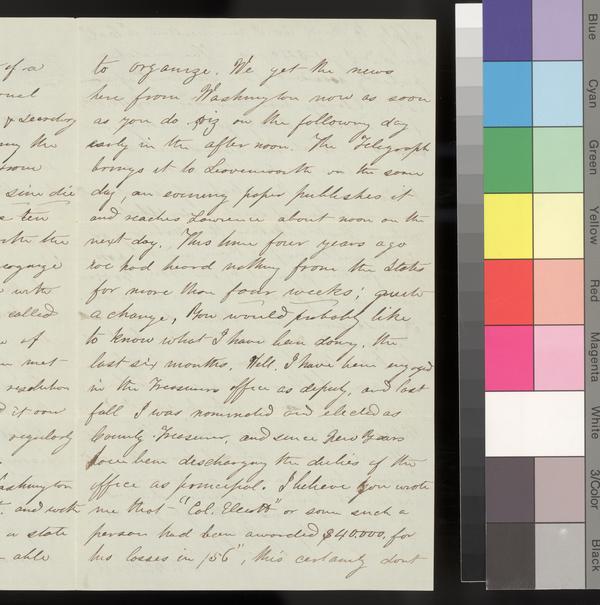 of a
& Secretary
the
from
sine die
ten
with the
with
called
of
met
resolution
it over
regularly
Washington
and with
a state
able
to organize. We get the news
here from Washington now as soon
as you do viz on the following day
early in the after noon. The Telegraph
brings it to Leavenworth on the same
day, an evening paper publishes it
and reaches Lawrence about noon on the
next day. This time four years ago
we had heard nothing from the States
for more than four weeks; quite
a change, You would probably like
to know what I have been doing, the
last six months. Well, I have been engaged
in the Treasurers office as deputy, and last
fall I was nominated and elected as
County Treasurer, and since New Years
have been discharging the duties of the
office as principal. I believe you wrote
me that "Col. Eliott" or some such a
person had been awarded $40000, for
his losses in /56", this certainly dont
Blue
Cyan
Green
Yellow
Red
Magenta
White
3/Color
Black